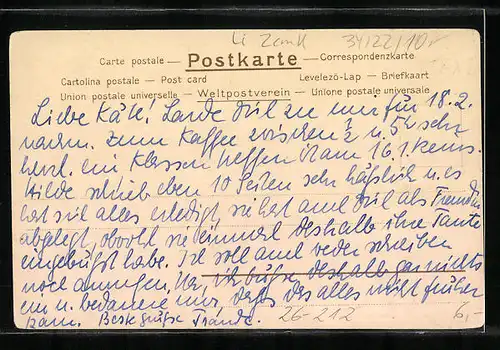 Li Zank 34122/10
Carte postale — Postkarte — Correspondenzkarte
Cartolina postale — Post card Levelező-Lap — Briefkaart
Union postale universelle — Weltpostverein — Unione postale universale
Liebe Käte! Lade Dich zu mir für 18.2.
nachm. zum Kaffee zwischen ½ u. 5 sehr
herzl. ein Klassentreffen kam 16.1.
Hilde schrieb eben 10 Seiten sehr hässlich u. es
hat sich alles erledigt, sie hat auch Dich als Freundin
abgelegt, obwohl sie einmal Deshalb ihre Tante
eingebüsst habe. Ich soll auch weder schreiben
noch anrufen, ich büsse deshalb gar nichts
ein u. bedaure nur, dass das alles nicht früher
kam. Beste Grüsse
26-212 6,-